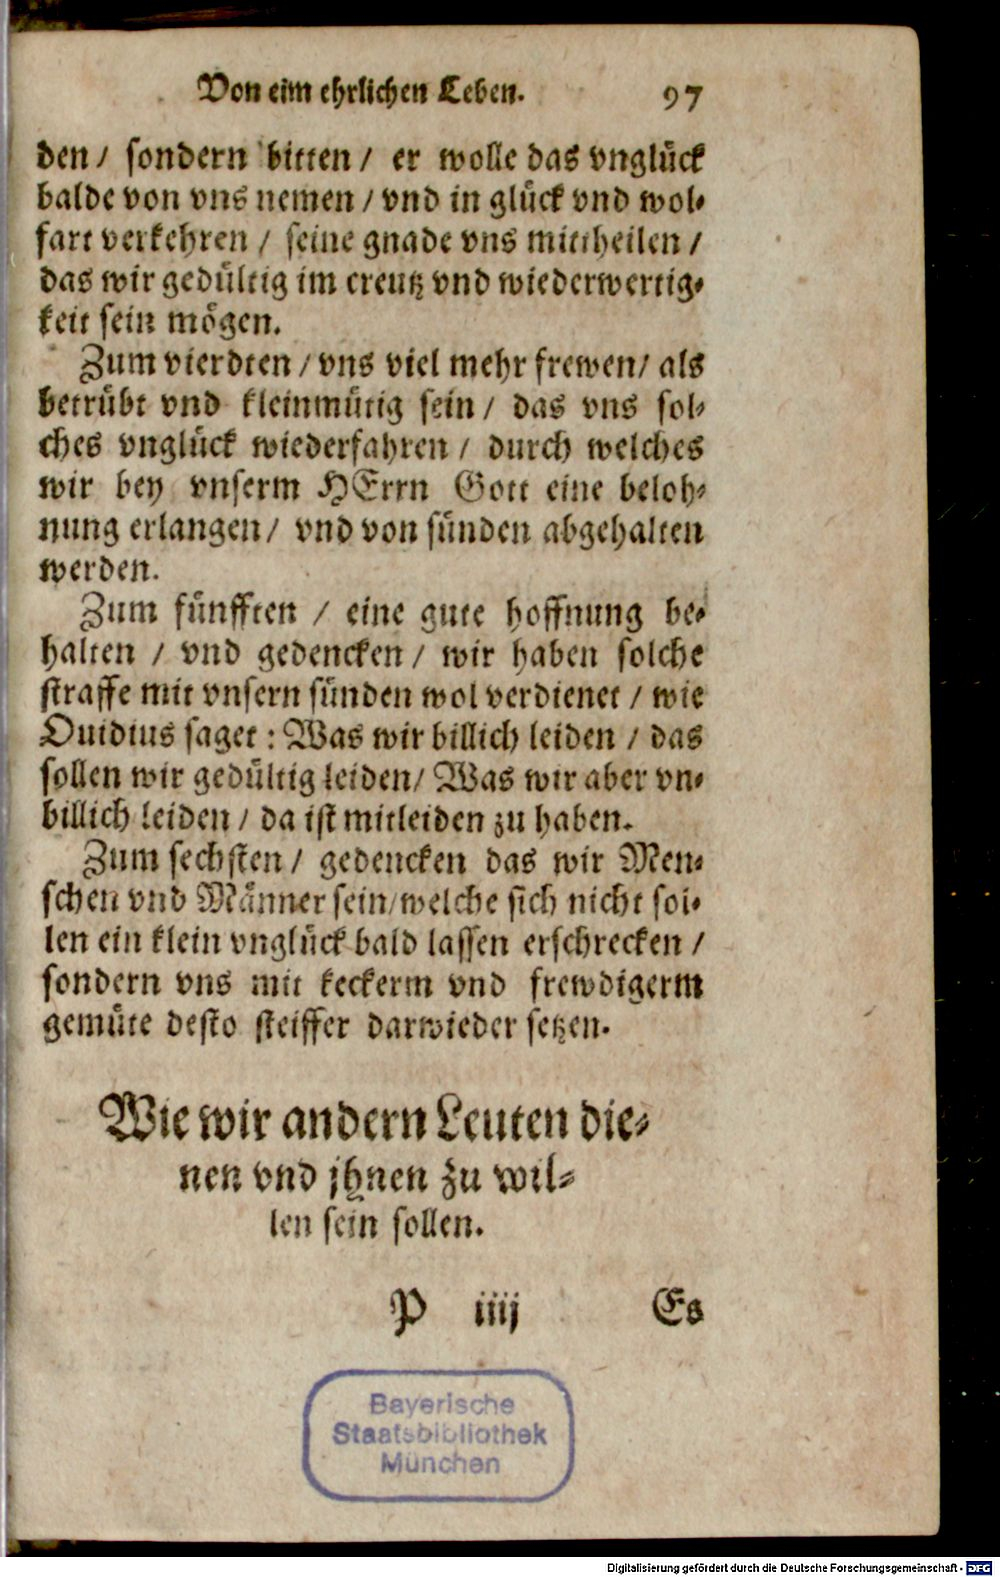 Von eim ehrlichen Leben. 97
den / sondern bitten / er wolle das vnglück
balde von vns nemen / vnd in glück vnd wol-
fart verkehren / seine gnade vns mittheilen /
das wir gedültig im creutz vnd wiederwertig-
keit sein mögen.
Zum vierdten / vns viel mehr frewen / als
betrübt vnd kleinmütig sein / das vns sol-
ches vnglück wiederfahren / durch welches
wir bey vnserm HErrn Gott eine beloh-
nung erlangen / vnd von sünden abgehalten
werden.
Zum fünfften / eine gute hoffnung be-
halten / vnd gedencken / wir haben solche
straffe mit vnsern sünden wol verdienet / wie
Ouidius saget : Was wir billich leiden / das
sollen wir gedültig leiden / Was wir aber vn-
billich leiden / da ist mitleiden zu haben.
Zum sechsten / gedencken das wir Men-
schen vnd Männer sein / welche sich nicht sol-
len ein klein vnglück bald lassen erschrecken /
sondern vns mit keckerm vnd frewdigerm
gemüte desto steiffer darwieder setzen.
Wie wir andern Leuten die-
nen vnd jhnen zu wil-
len sein sollen.
P iiij Es
Bayerische
Staatsbibliothek
München
Digitalisierung gefördert durch die Deutsche Forschungsgemeinschaft - DFG